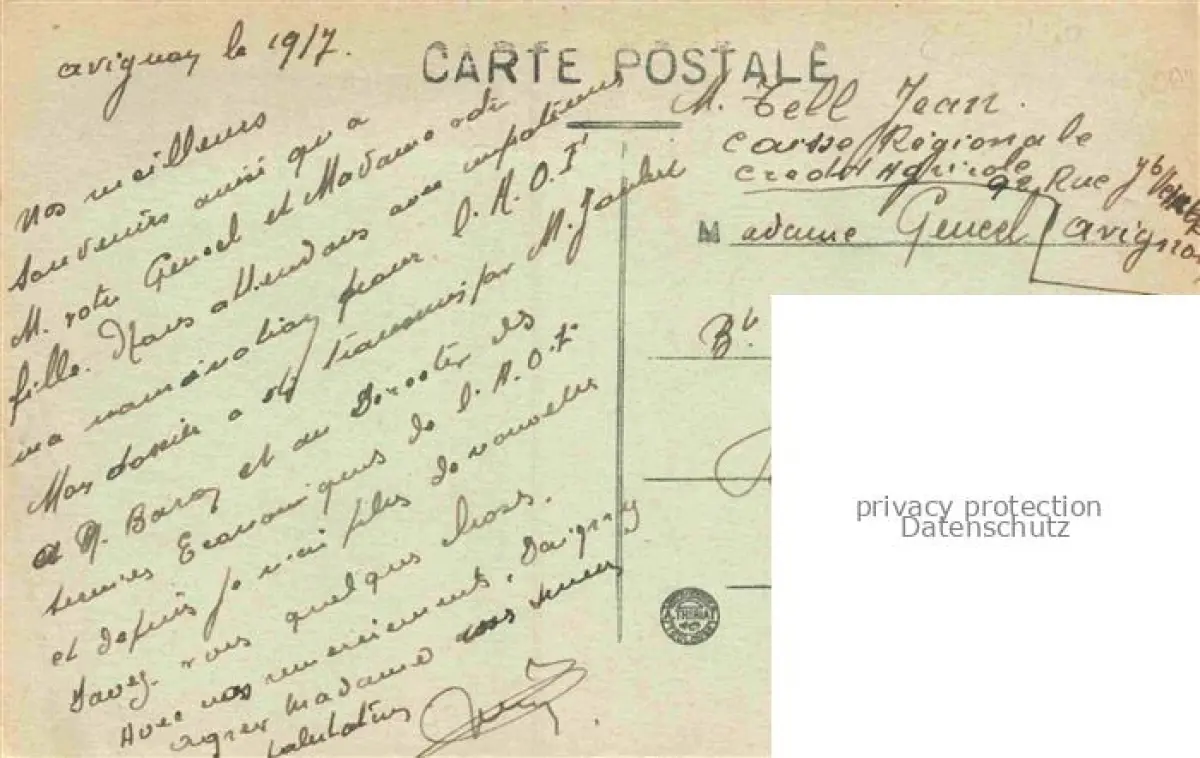 avignon le 19/7.
CARTE POSTALE
Nos meilleurs
souvenirs ainsi qu'a
M. votre Genoel et Madame votre
fille. Nous attendons avec impatience
ma nomination pour l'A.O.F
Mon dossier a été transmis par M.
et M. Baron et au Director des
services Economiques de l'A.O.F.
et depuis je n'ai plus de nouvelles
Savez-vous quelques choses.
Avec nos remerciements. Daignez
agreer Madame nos
salutations
M. Tell Jean.
Caisse Régionale
Credot Agricole
Rue
Avignon
Madame Genoel
Bd
privacy protection
Datenschutz